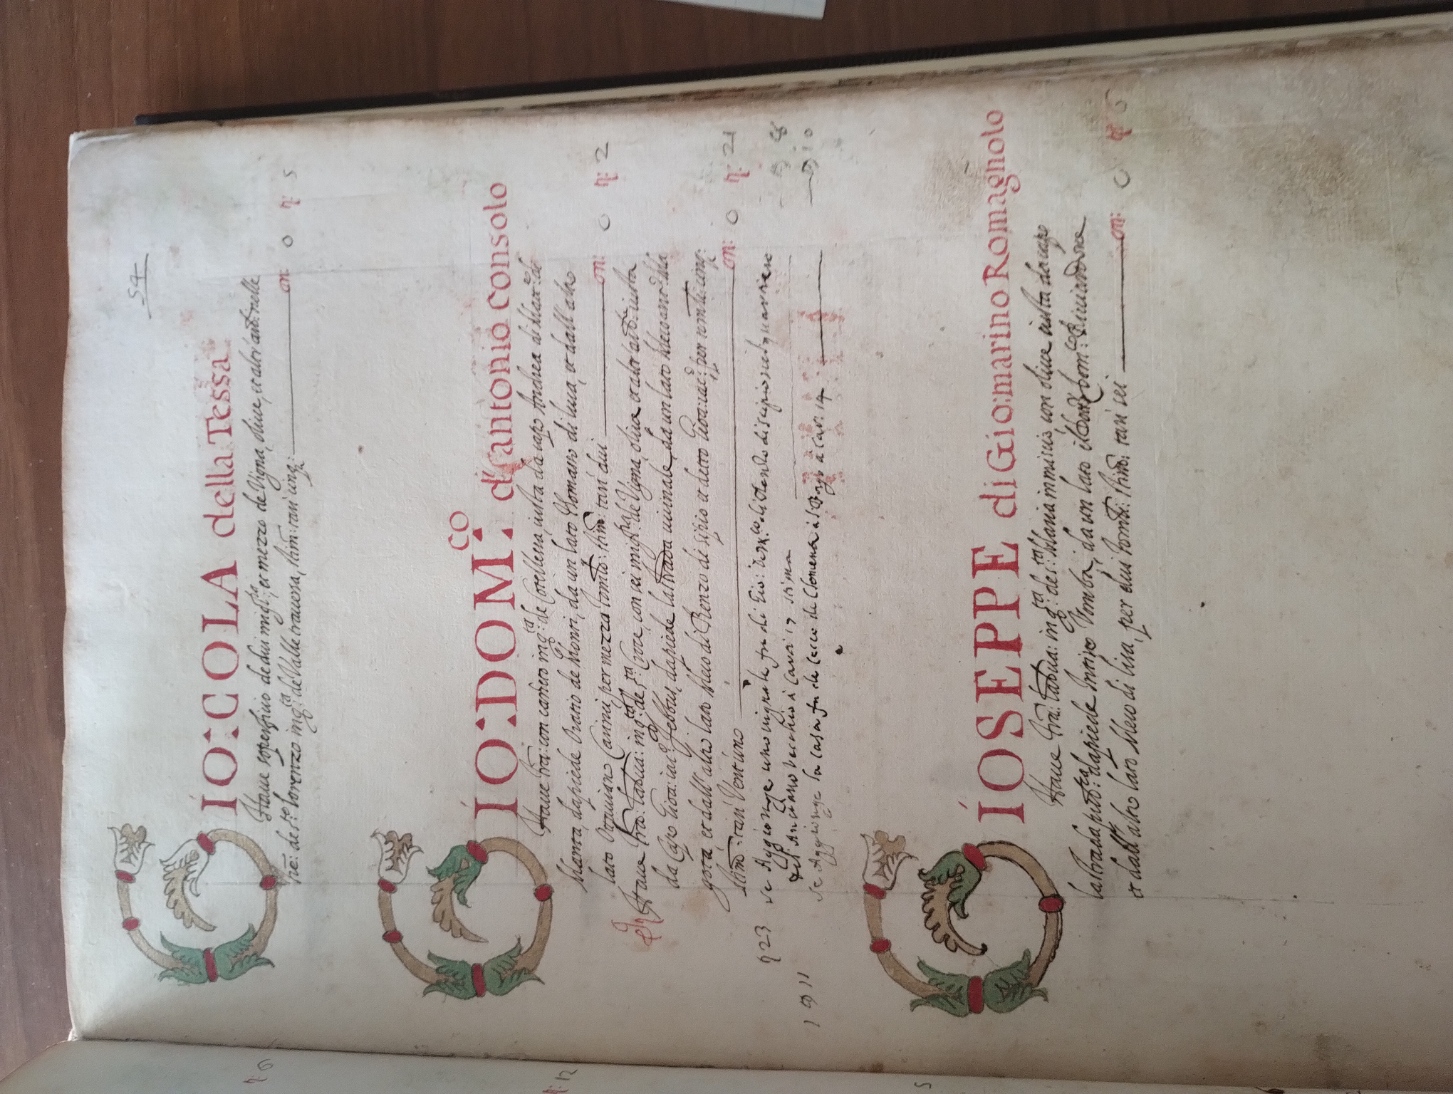 54
GIO: COLA della Tessa
Haue soperficio de dui migl.ra, et mezzo de Vigna, oliue, et altr'arb: nelle
tre: de s.to lorenzo in q.ta de Valle trauersa, stim: tari cinq: on: 0 t: 5
GIO: DOM:co d'Santonio Consolo
Haue tra: con caneto in q.ta de Corellessa, iusta da capo Andrea di Mar.o de
Manta, dapiede Oratio de Monti, da un lato Thomasso di luca, et dall'altro
lato Ottauiano Carinci, per mezza tom:lo: stim: tari dui on: 0 t: 2
Haue tra: labua: in q.ta de s.ta Croce, con sei migl.ra de Vigna, oliue et altr'arb: iusta
da capo Gioa: iac.o Febbus, dapiede lastrada uicinale, da un lato Meco ant.o Ma
gota et dall'altro lato Meco di Renzo di sipio et detto Gioa: iac.o per tom:li cinq:
stim: tari Ventuno on: 0 t: 21
t 23 se Aggionge uno uignale fu di Gio: Dom.co di Renzo di scipio nel quartiere
del Anciano Vecchio à Cavr: 17 stima 8
se Aggionge la casa fu de Cecco de Clemente à s.Borgo à Car: 14 10
GIOSEPPE di Gio: marino Romagnolo
Haue tra: labua: in q.ta de s.ta Maria inmiscio, con oliue iusta da capo
lastrada pub.ca dapiede Intino Vomba, da un lato il Dott.r Dom.co Ricciardone
et dall'altro lato Meco di lisa, per dui tom:li: stim: tari sei on: 0 t: 6